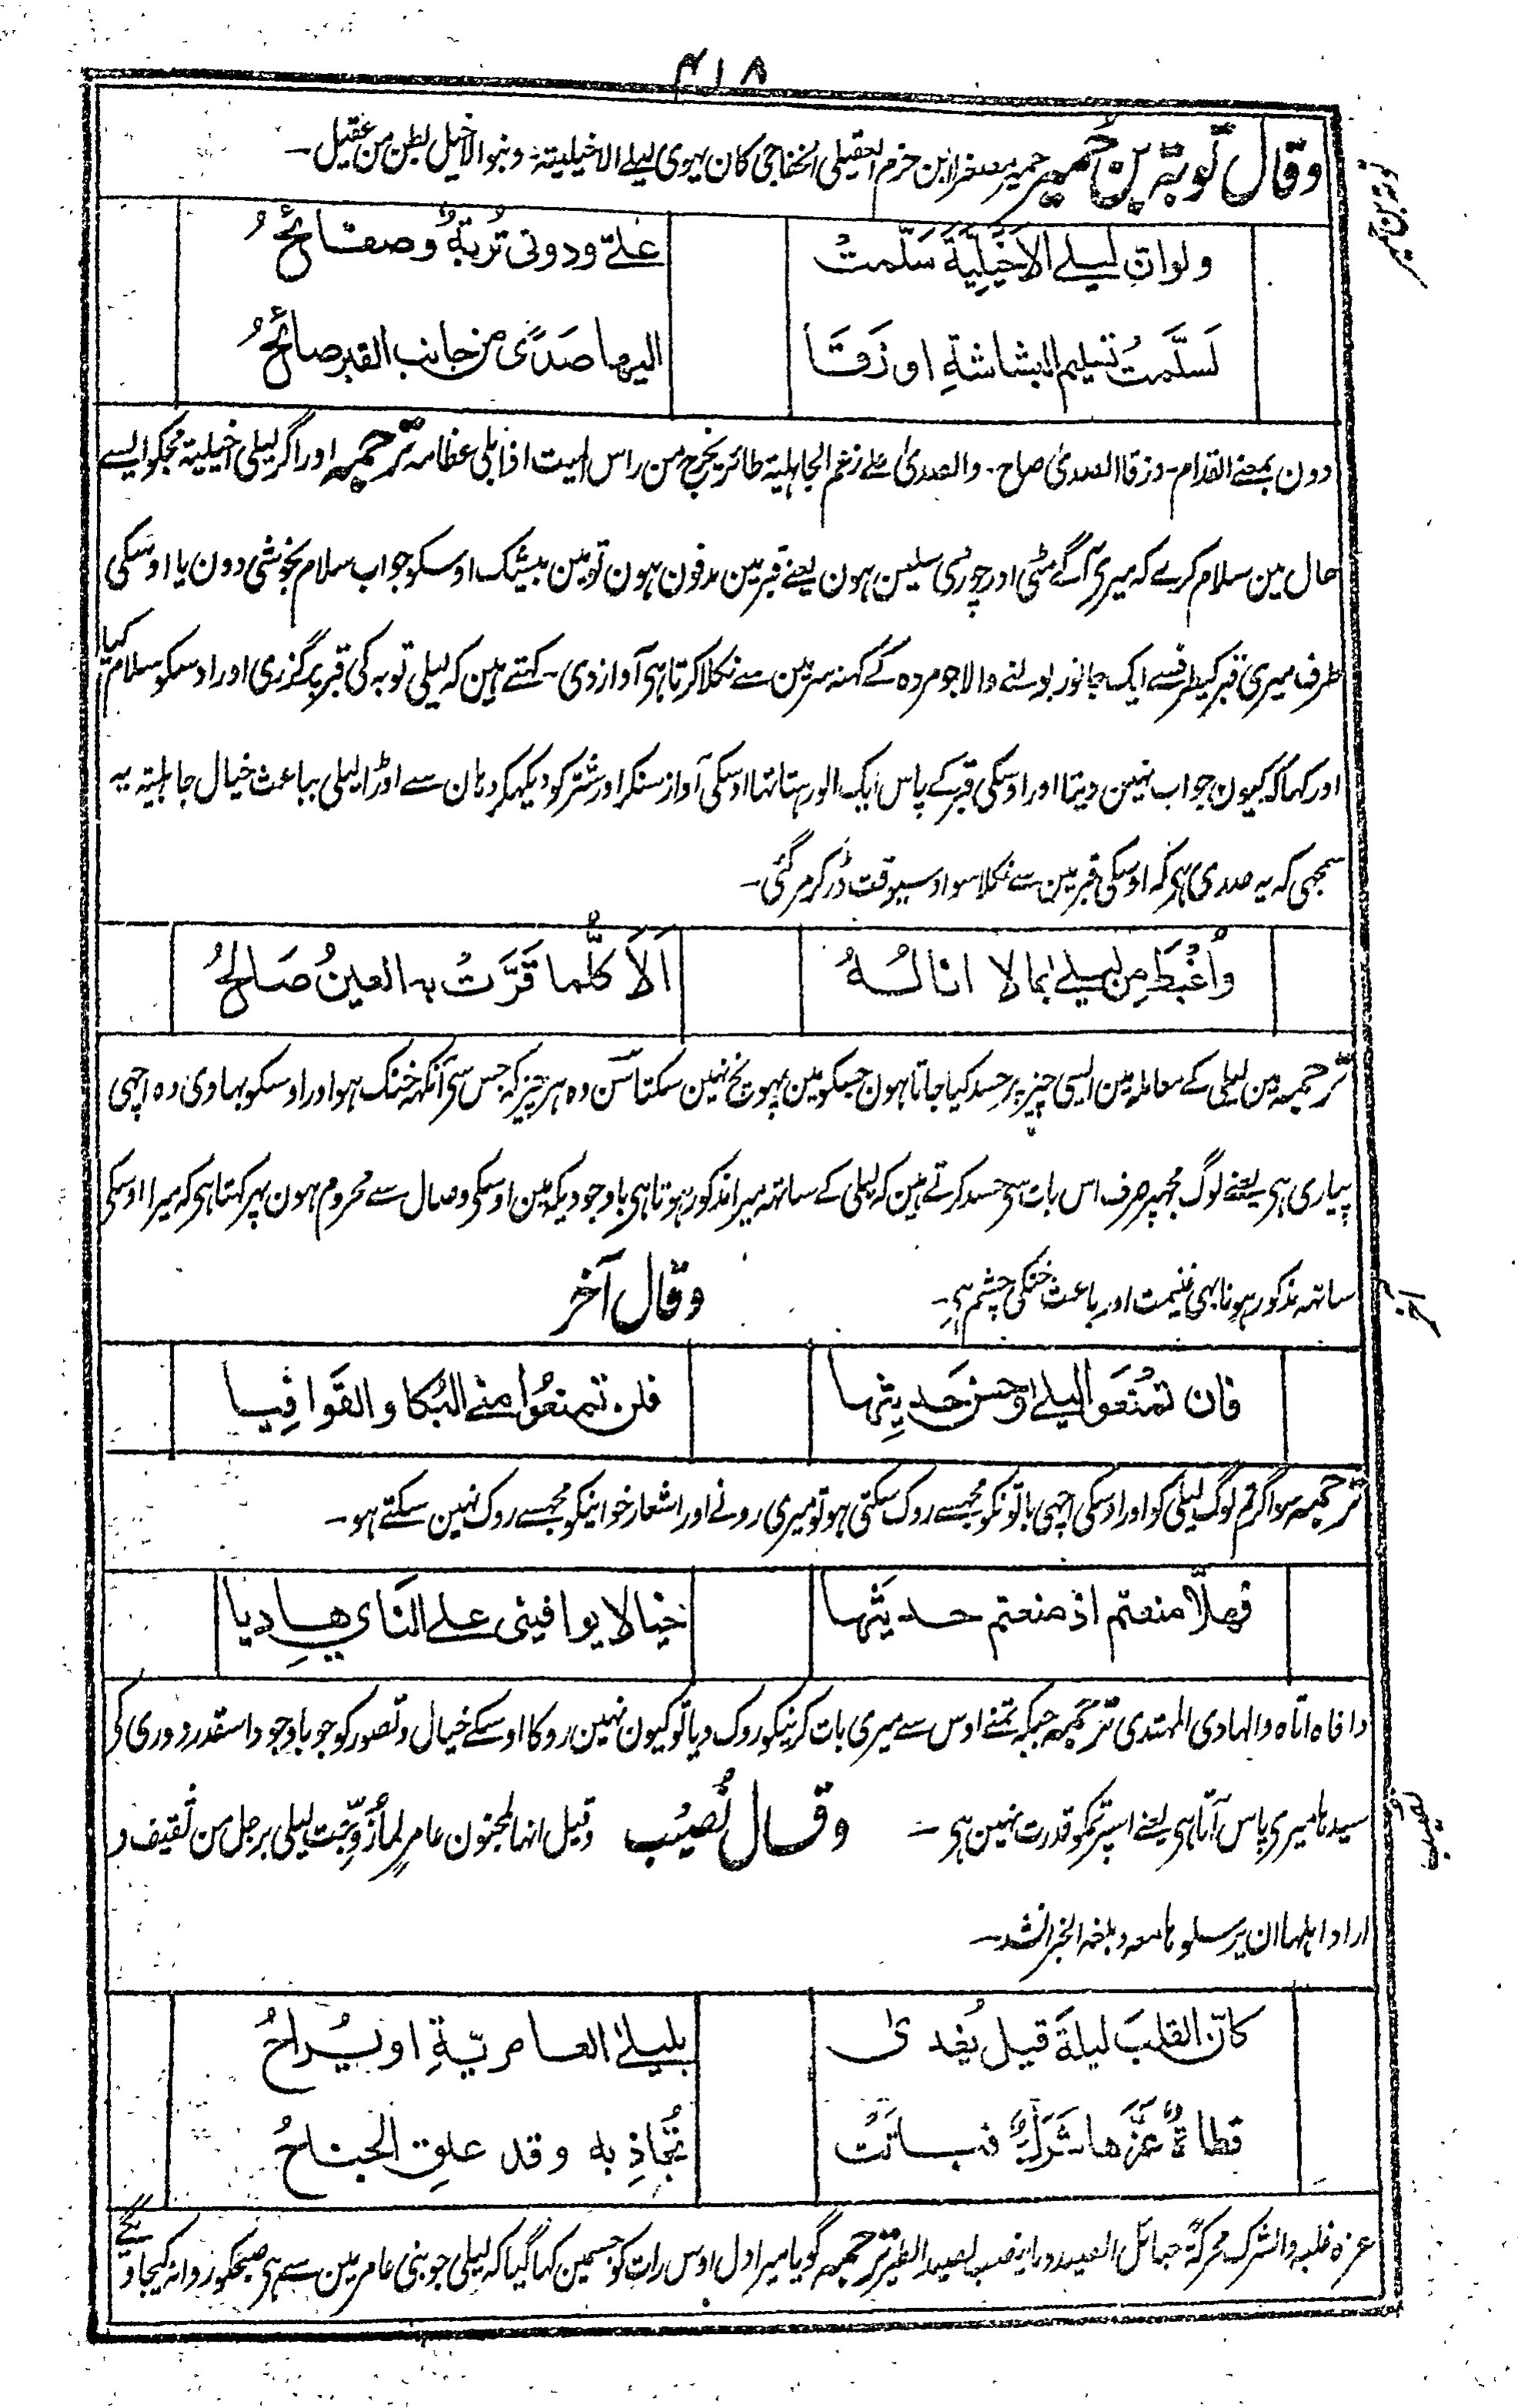 ۴۱۸
وقال توبۃ بن حُمَیّر حمیر مصغرا ابن حزم العقیلی الخفاجی کان یہوی لیلے الاخیلیتہ۔ وبنو الاخیل بطن من عقیل۔
ولوان لیلے الاَخْیَلِیَّةَ سَلَّمتْ علےّ ودونی تُربۃٌ وصفائحُ
لَسَلَّمتُ تسلیم البشاشةِ او زَقَا الیہا صَدًی من جانب القبر صائحُ
دون بمعنے القدام۔ وزقا الصدیٰ صاح۔ والصدیٰ علے زعم الجاہلیة طائر یخرج من راس المیت اذا بلی عظامہ ترجمہ اور اگر لیلی اخیلیة مجکو ایسے
حال مین سلام کرے کہ میری آگے مٹی اور چوڑی سلین ہون یعنے قبر مین مدفون ہون تو مین بیشک اوسکو جواب سلام بخوشی دون یا اوسکی
طرف میری قبر کیطرفسے ایک جانور بولنے والا جو مردہ کے کہنہ سر مین سے نکلا کرتا ہی آواز دی۔ کہتے ہین کہ لیلی توبہ کی قبر پر گزری اور اوسکو سلام کیا
اور کہا کہ کیون جواب نہین دیتا اور اوسکی قبر کے پاس ایک الو رہتا تہا اوسکی آواز سنکر اور شتر کو دیکہکر وہان سے اوڑا لیلی بباعث خیال جاہلیتہ یہ
سمجہی کہ یہ صدی ہی کہ اوسکی قبر مین سے نکلا سو اوسیوقت ڈر کر مر گئی۔
وأُغْبَطُ مِن لیلے بما لا انالہُ اَلاَ کلُّما قَرَّتْ بہ العینُ صَالحُ
ترجمہ مین لیلی کے معاملہ مین ایسی چیز پر حسد کیا جاتا ہون جسکو مین پہونچ نہین سکتا سُن وہ ہر چیز کہ جس سی آنکہہ خنک ہو اور اوسکو بہاوی وہ اچہی
پیاری ہی یعنے لوگ مجہپر صرف اس بات سی حسد کرتے ہین کہ لیلی کے ساتہہ میرا مذکور ہوتا ہی باوجودیکہ مین اوسکی وصال سے محروم ہون پہر کہتا ہی کہ میرا اوسکی
ساتہہ مذکور ہونا بہی غنیمت اور باعث خنکی چشم ہی۔ وقال آخر
فان تمنَعوا لیلےٰ وحسن حَدیثِہا فلن تمنعُوا منے البُکا والقَوافِیا
ترجمہ سو اگر تم لوگ لیلی کو اور اوسکی اچہی باتونکو مجہسے روک سکتی ہو تو میری رونے اور اشعار خوانیکو مجہسے روک نہین سکتے ہو۔
فہلّا منعتم اذ منعتم حدیثَہا خیالا یوافینی علے النَاَیِ ہادیا
وافاہ اتاہ والہادی المہتدی ترجمہ جبکہ تمنے اوس سے میری بات کرنیکو روک دیا تو کیون نہین روکا اوسکے خیال وتصور کو جو باوجود اسقدر دوری کی
سیدہا میری پاس آتا ہی یعنے اسپر تمکو قدرت نہین ہی۔ وقال نُصَیْب وقیل انہا لمجنون عامرٍ لما زُوِّجَت لیلی برجل من ثقیف و
اراد اہلہا ان یرسلوہا معہ وبلغہ الخبر انشد۔
کانّ القلبَ لیلةَ قیل یُغدیٰ بلیلےٰ العامریّةِ او یُراحُ
قطاةٌ عَزَّہا شَرَکٌ فباتَتْ تُجَاذِبہ وقد علِق الجناحُ
عزہ غلبہ والشرک محرکةً حبائل الصید وما ینصب لصید الطیر ترجمہ گویا میرا دل اوس رات کو جسمین کہا گیا کہ لیلی جو بنی عامر مین سے ہی صبحکو روانہ کیجاویگی
آخر
نصیب